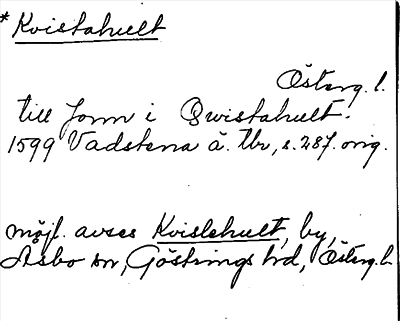 * Kvistahult
Österg. l.
till Jonn i Qwistahult.
1599 Vadstena ä. tbr, s. 287. orig.
möjl. avses Kvislehult, by,
Asbo sn, Göstrings hd, Österg. l.